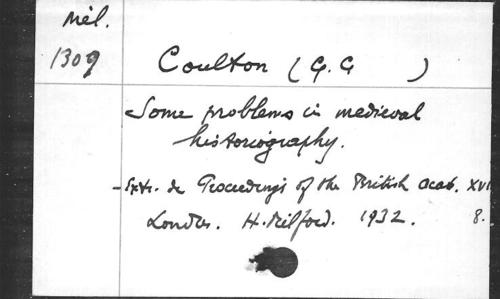 Mél.
1309
Coulton (G. G )
Some problems in medieval
historiography.
- Extr. de Proceedings of the British Acad. XVI
Londres. H. Milford. 1932. 8.